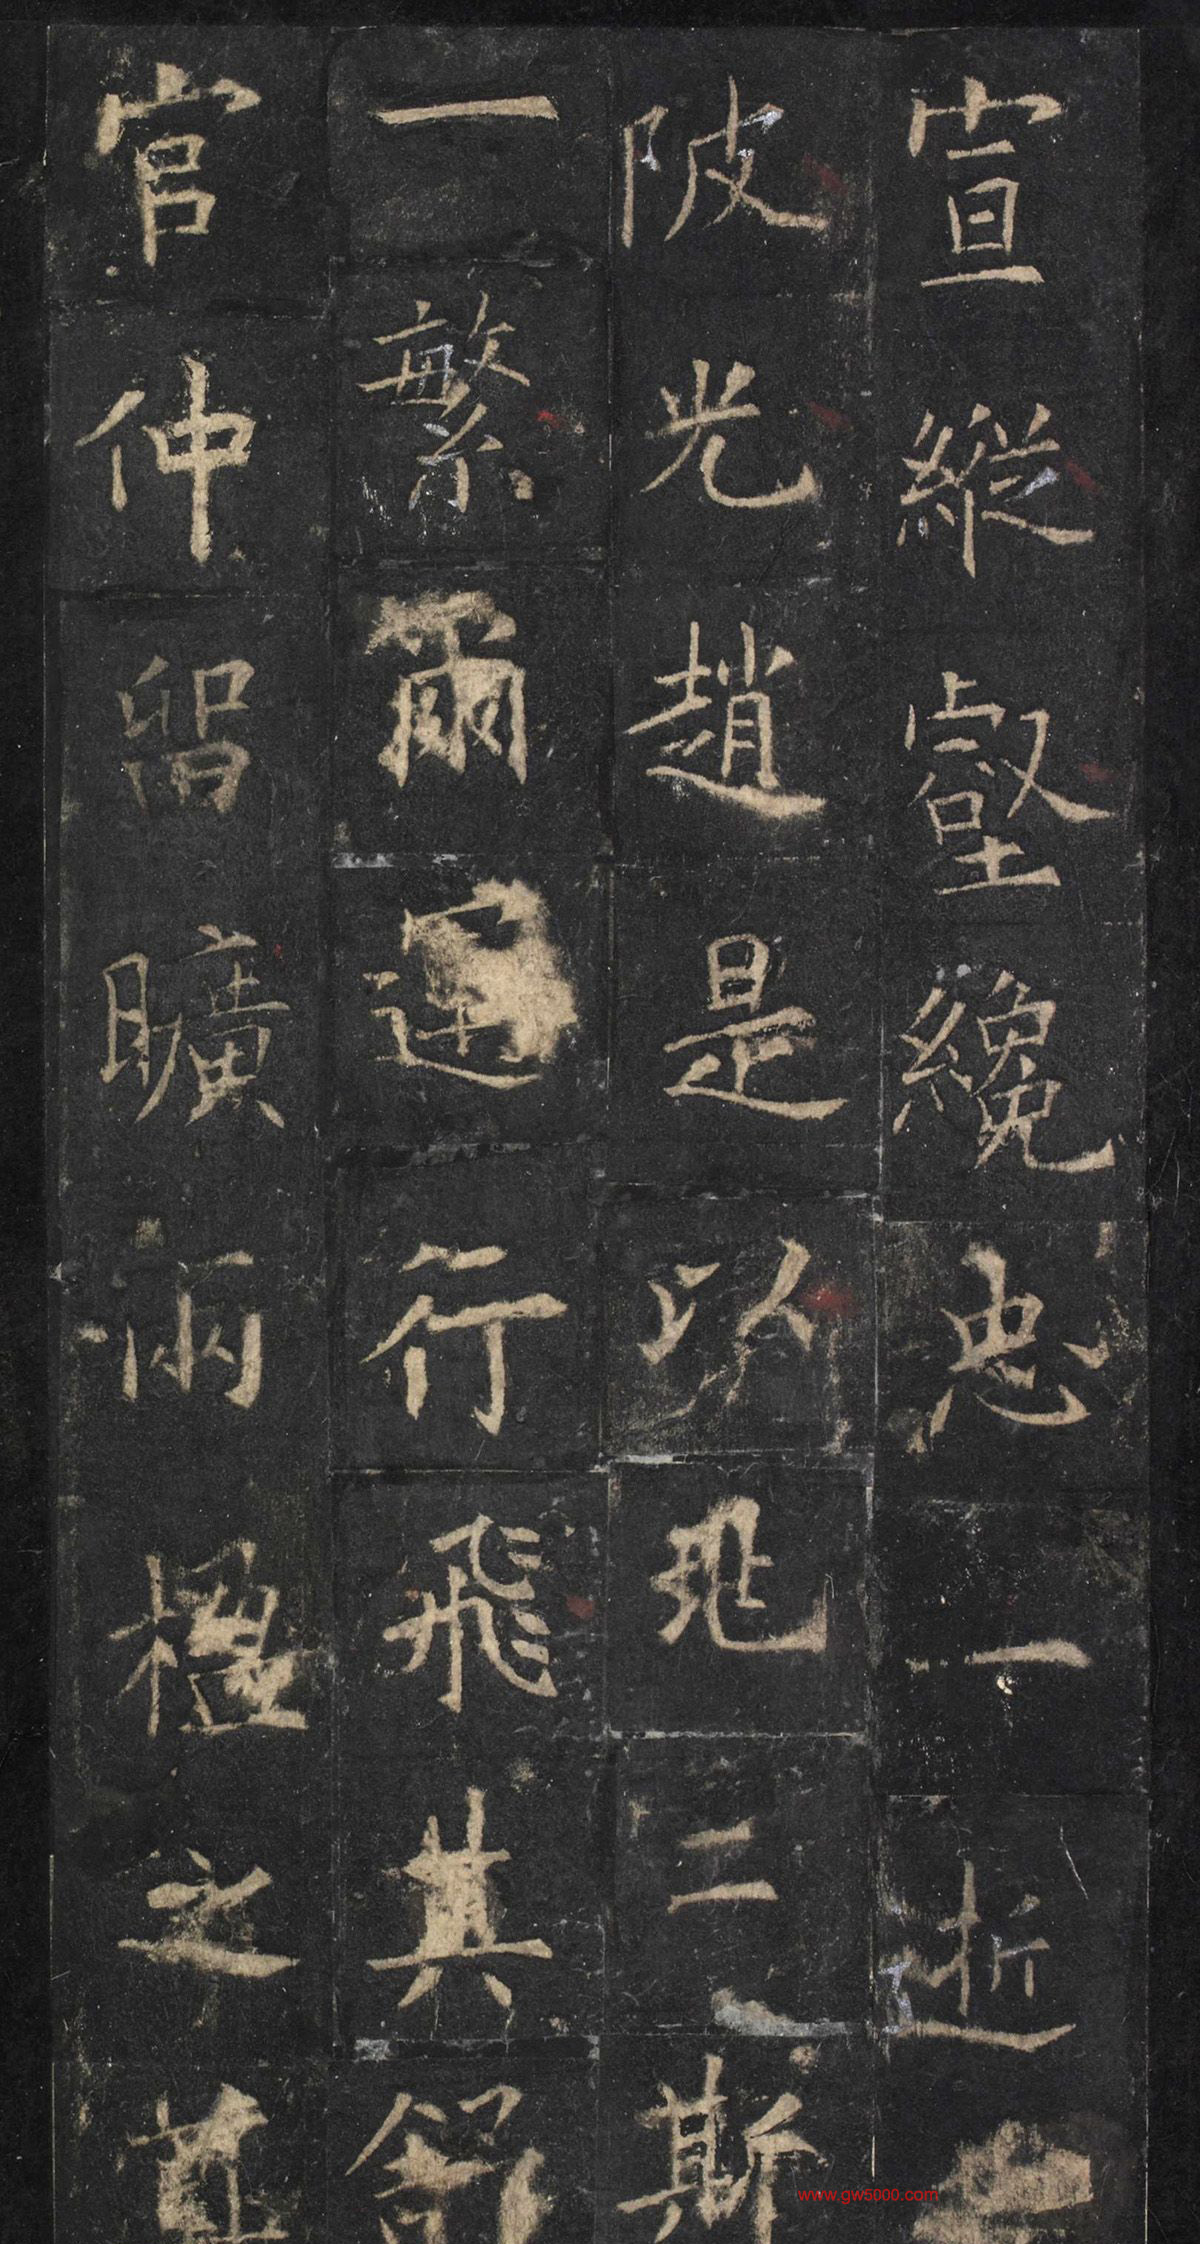 宣縱壑纔忠一逝
陂光趙是以二斯
一繁爾行飛其
官仲留曠兩楹之
www.gw5000.com